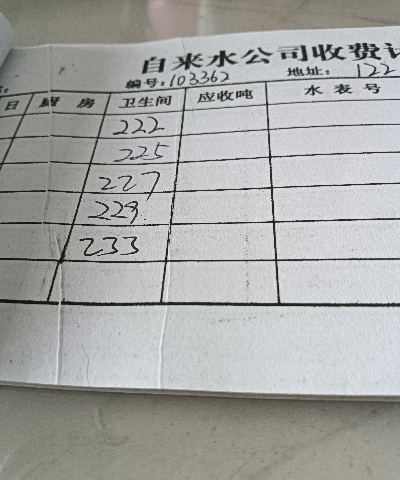 自来水公司收费
编号:103362 地址: 122
日 厨房 卫生间 应收吨 水表号
222
225
227
229
233